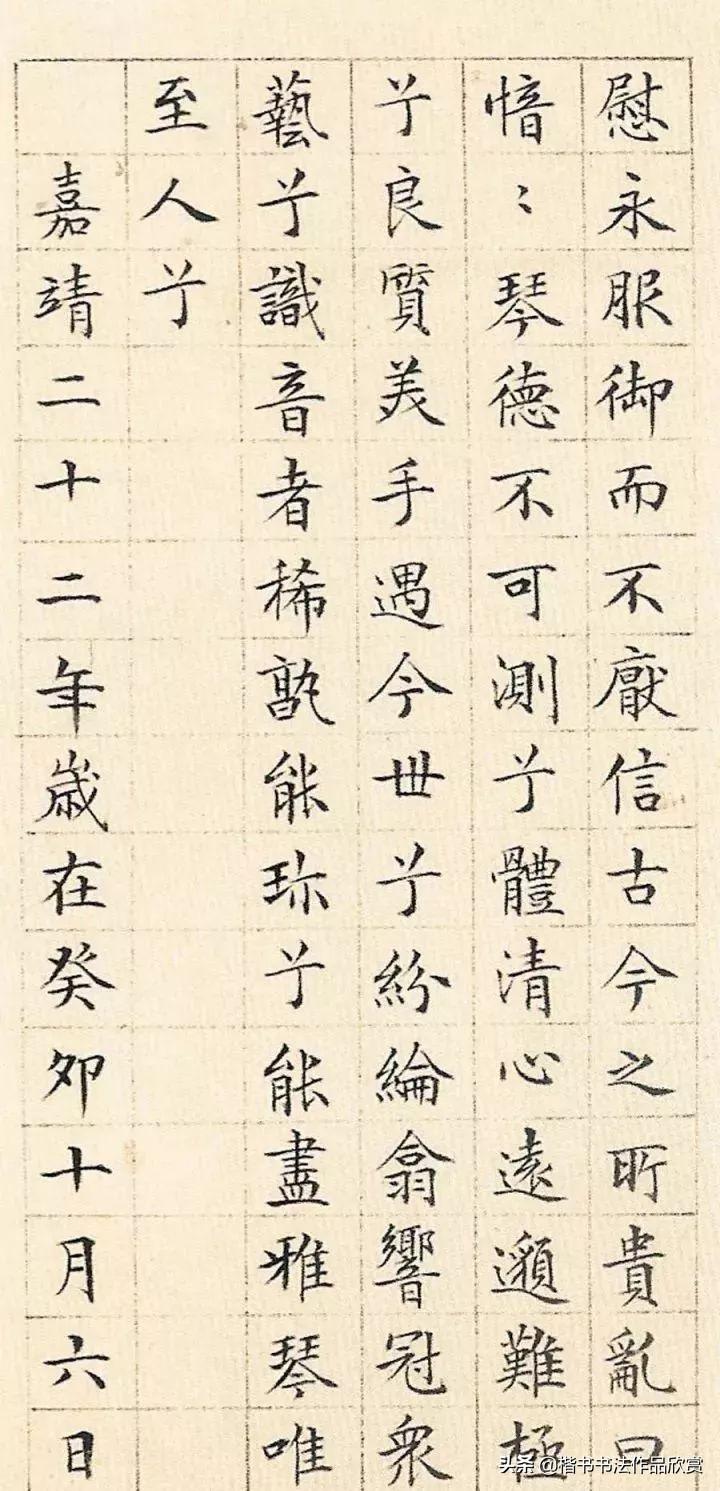 慰永服御而不厭信古今之所貴亂曰
愔〻琴德不可測兮體清心遠邈難極
兮良質美手遇今世兮紛綸翕響冠衆
藝兮識音者稀孰能珎兮能盡雅琴唯
至人兮
嘉靖二十二年歲在癸卯十月六日
头条 @楷书书法作品欣赏